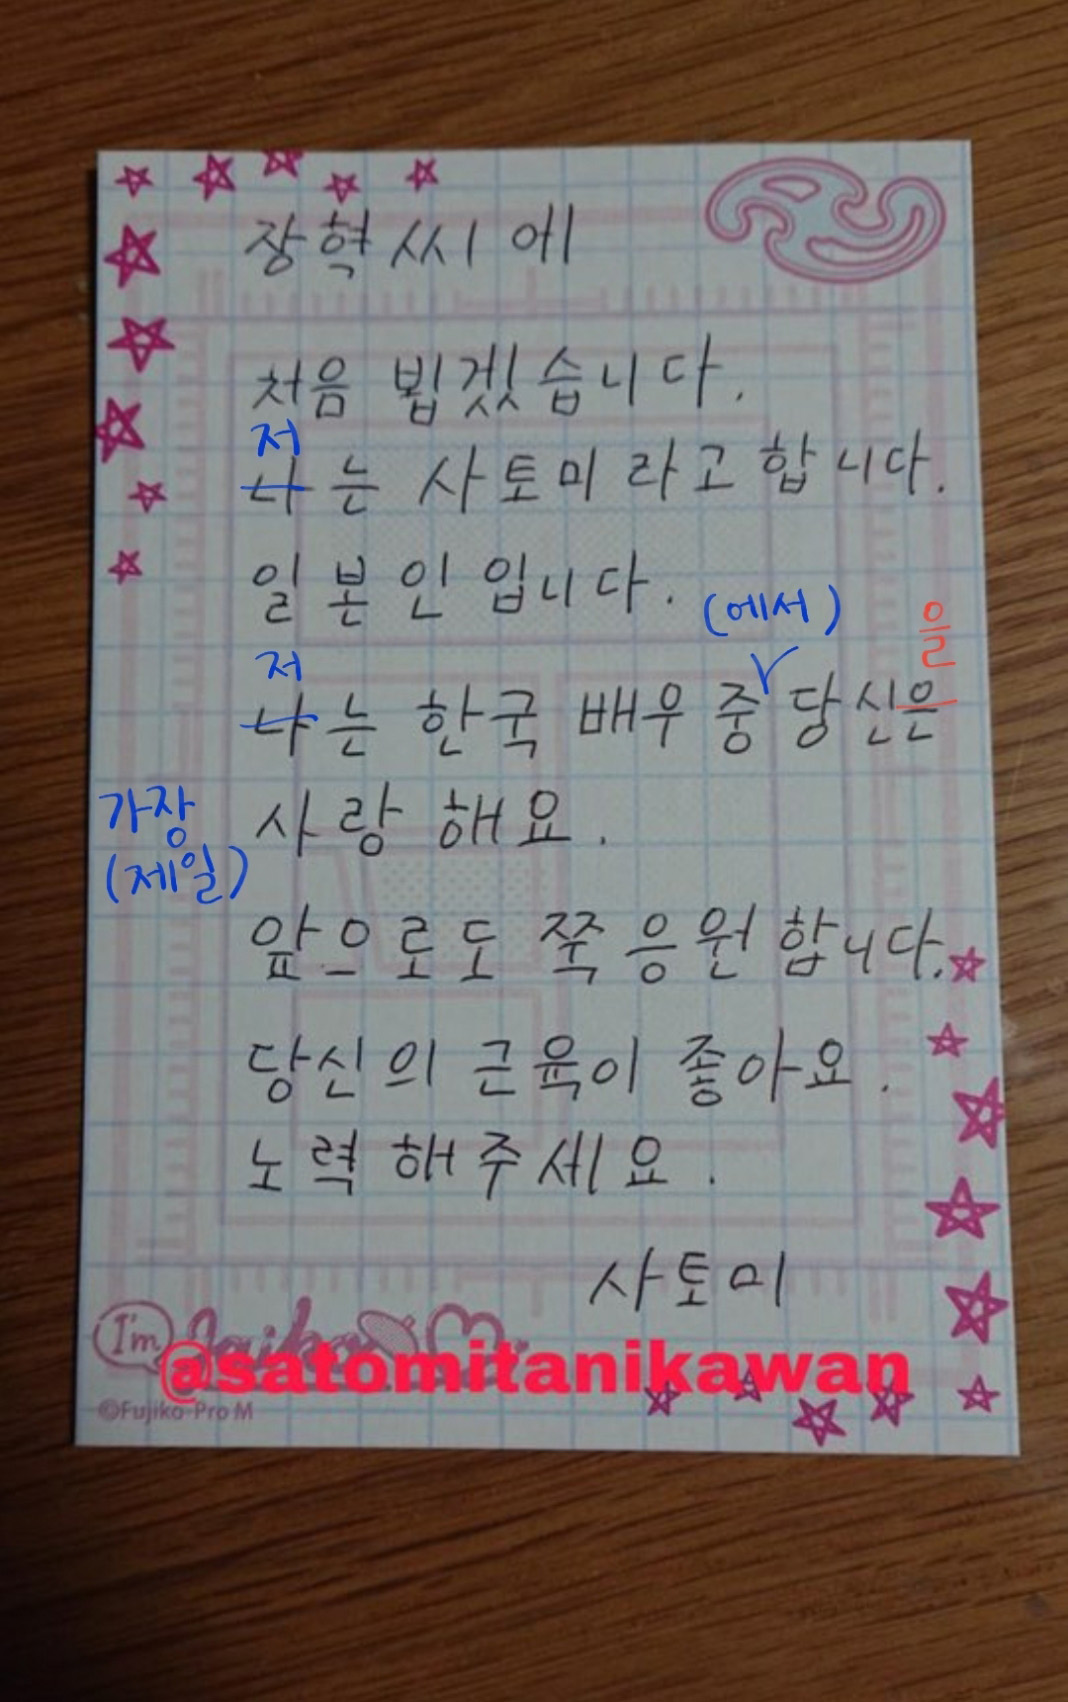 장혁씨에
처음 뵙겟습니다.
저
나는 사토미라고합니다.
일본인입니다.
(에서)
을
저
나는 한국 배우 중 당신은
가장
(제일)
사랑해요.
앞으로도 쭉 응원합니다.
당신의 근육이 좋아요.
노력해주세요.
사토미
I'm Jaiko
@satomitanikawan
©Fujiko-Pro M